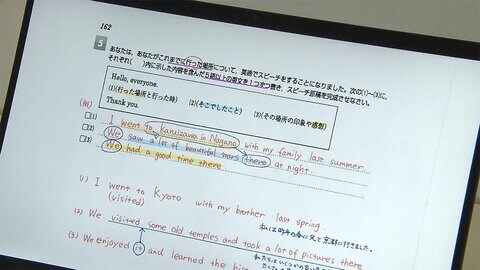 162
5 あなたは，あなたがこれまでに行った場所について，英語でスピーチをすることになりました。次の(1)～(3)に，
それぞれ( )内に示した内容を含んだ5語以上の英文を1つずつ書き，スピーチ原稿を完成させなさい。
Hello, everyone.
(1)(行った場所と行った時) (2)(そこでしたこと) (3)(その場所の印象や感想)
Thank you.
(例)
□(1) I went to Karuizawa in Nagano with my family last summer.
□(2) We saw a lot of beautiful stars there at night.
□(3) We had a good time there
(1) I went to Kyoto with my brother last spring
(visited)
私は昨年の春に兄と京都に行きました。
(2) We visited some old temples and took a lot of pictures there
(3) We enjoyed it and learned the